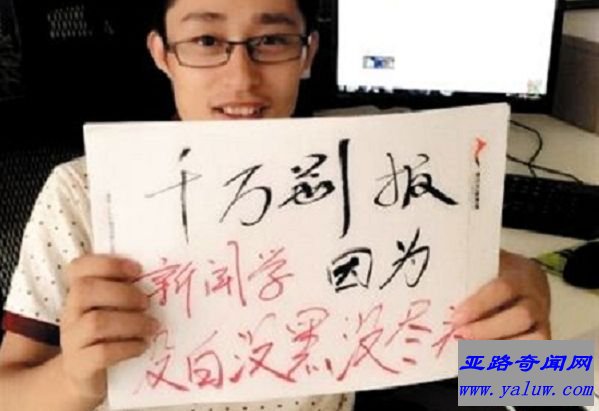 千万别报
新闻学 因为
没白没黑没尽头
亚路奇闻网
www.yaluw.com